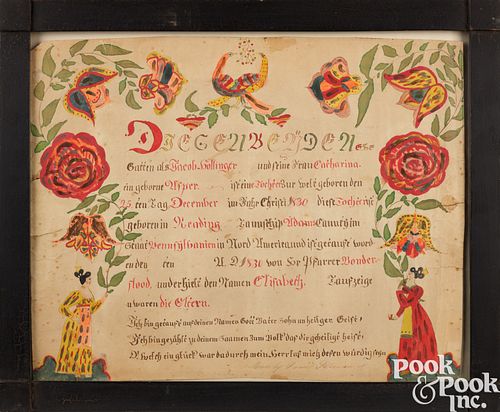 DIESEN BEYDEN Ehe
Gatten als Jacob Hollinger und seine Frau Catharina
ein geborne Asper ist eine Tochter zur welt geboren den
25 ten Tag December im Jahr Christi 1830 diese Tochter ist
geboren in Reading Taunschip Adams Caunty im
Staat Pennsylvanien in Nord America und ist getauft word
en den ten A.D 1830 von Hr Pfarrer Bonder-
stood, und erhielt den Namen Elisabeth. Taufzeige
n waren die Eltern.
Ich bin getauft auf deinen Namen Gott Vater Sohn und heilger Geist;
Ich bin gezählt zu deinem Saamen zum Volk das dir geheilige heist;
O welch ein glück war dadurch mein Herr laß mich dessen würdig seyn
POOK &
POOK
INC.